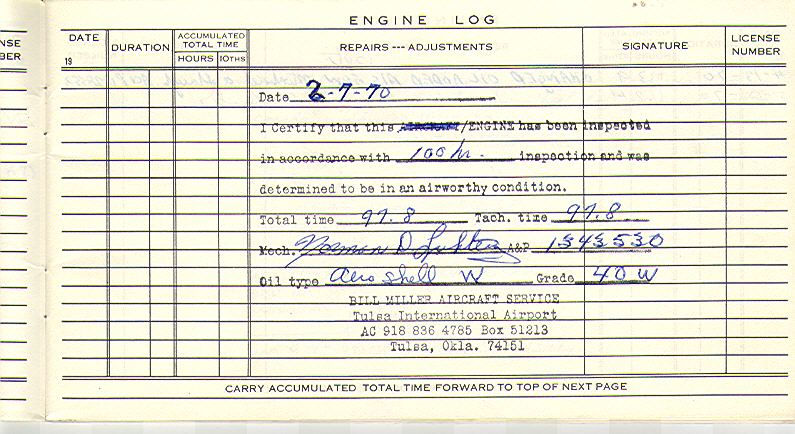 ENGINE LOG
DATE
19
DURATION
ACCUMULATED TOTAL TIME
HOURS
10THS
REPAIRS --- ADJUSTMENTS
SIGNATURE
LICENSE NUMBER
NSE
BER
Date 2-7-70
I Certify that this AIRCRAFT/ENGINE has been inspected
in accordance with 100 hr. inspection and was
determined to be in an airworthy condition.
Total time 97.8 Tach. time 97.8
Mech. Norman D A&P 1543530
Oil type Aero shell W Grade 40 W
BILL MILLER AIRCRAFT SERVICE
Tulsa International Airport
AC 918 836 4785 Box 51213
Tulsa, Okla. 74151
CARRY ACCUMULATED TOTAL TIME FORWARD TO TOP OF NEXT PAGE